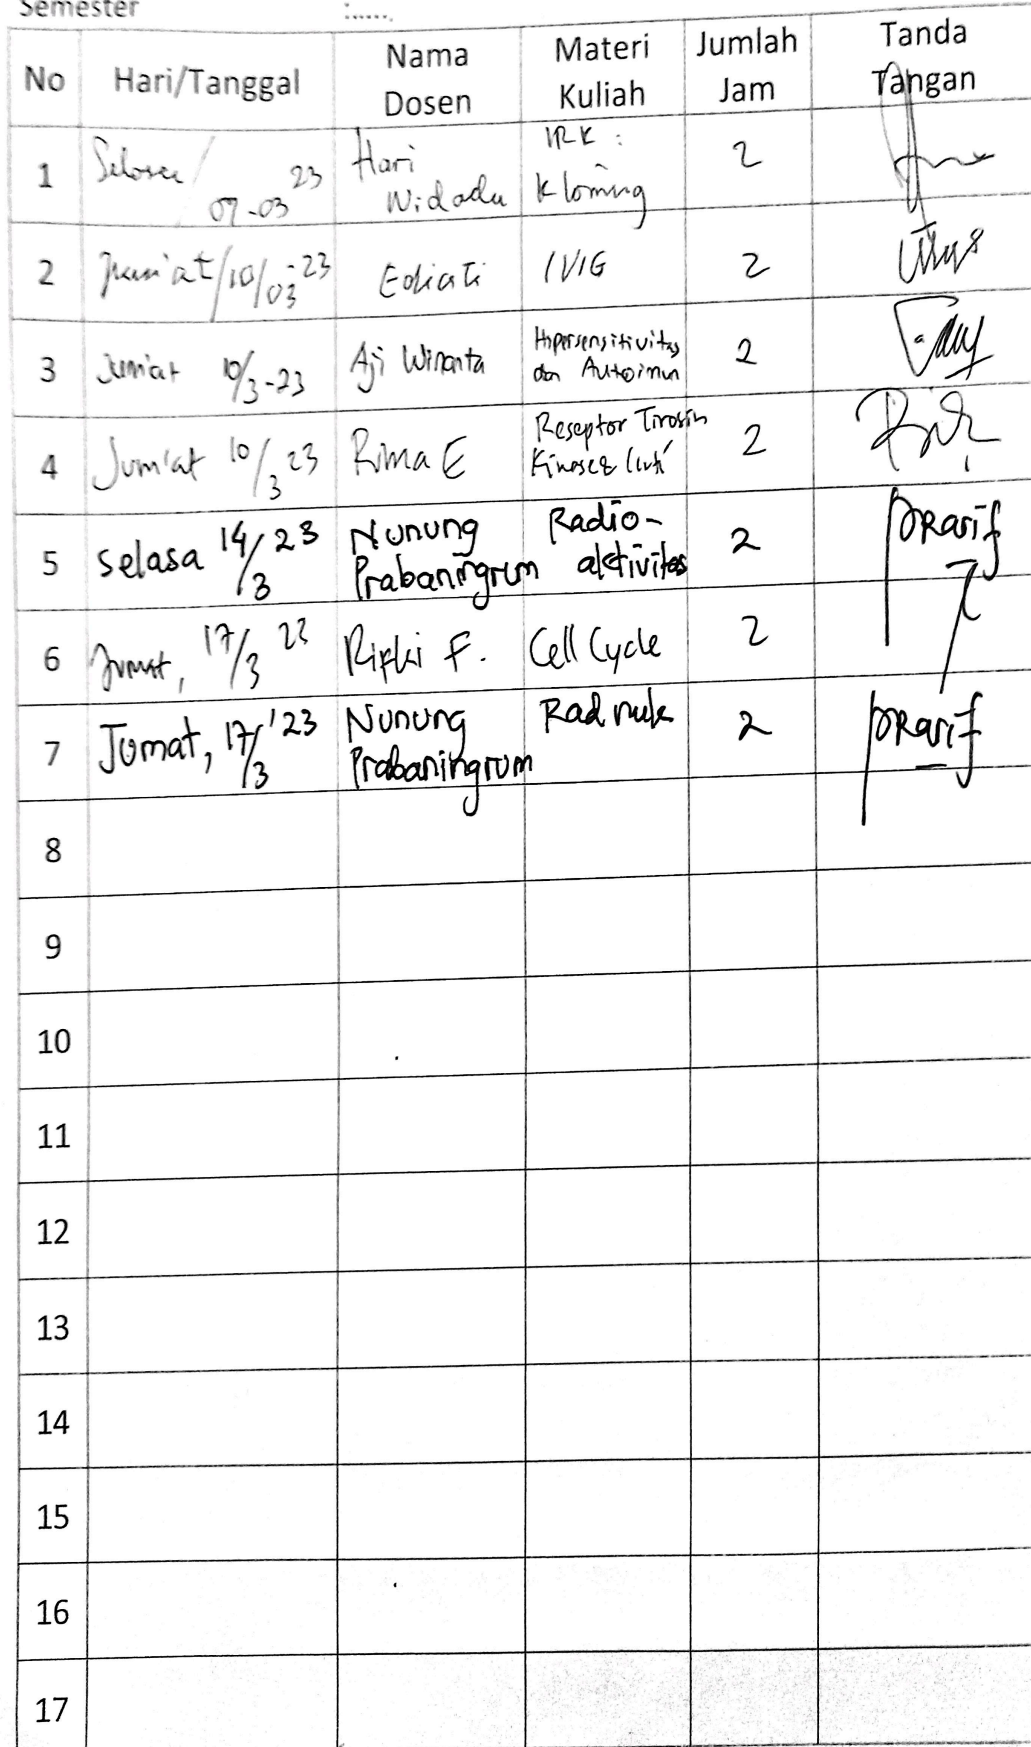 Semester :......
No Hari/Tanggal Nama Dosen Materi Kuliah Jumlah Jam Tanda Tangan
1 Selasa/ 07-03 23 Hari Widodo IRK : Kloning 2
2 Jum'at/10/03-23 Ediati IVIG 2
3 Jum'at 10/3-23 Aji Winanta Hipersensitivitas dan Autoimun 2
4 Jum'at 10/3 23 Rima E Reseptor Tirosin Kinase & Inti 2
5 Selasa 14/3 23 Nunung Prabaningrum Radio-aktivitas 2
6 Jumat, 17/3 23 Rifki F. Cell Cycle 2
7 Jumat, 17/3 '23 Nunung Prabaningrum Radnuk 2
8
9
10
11
12
13
14
15
16
17